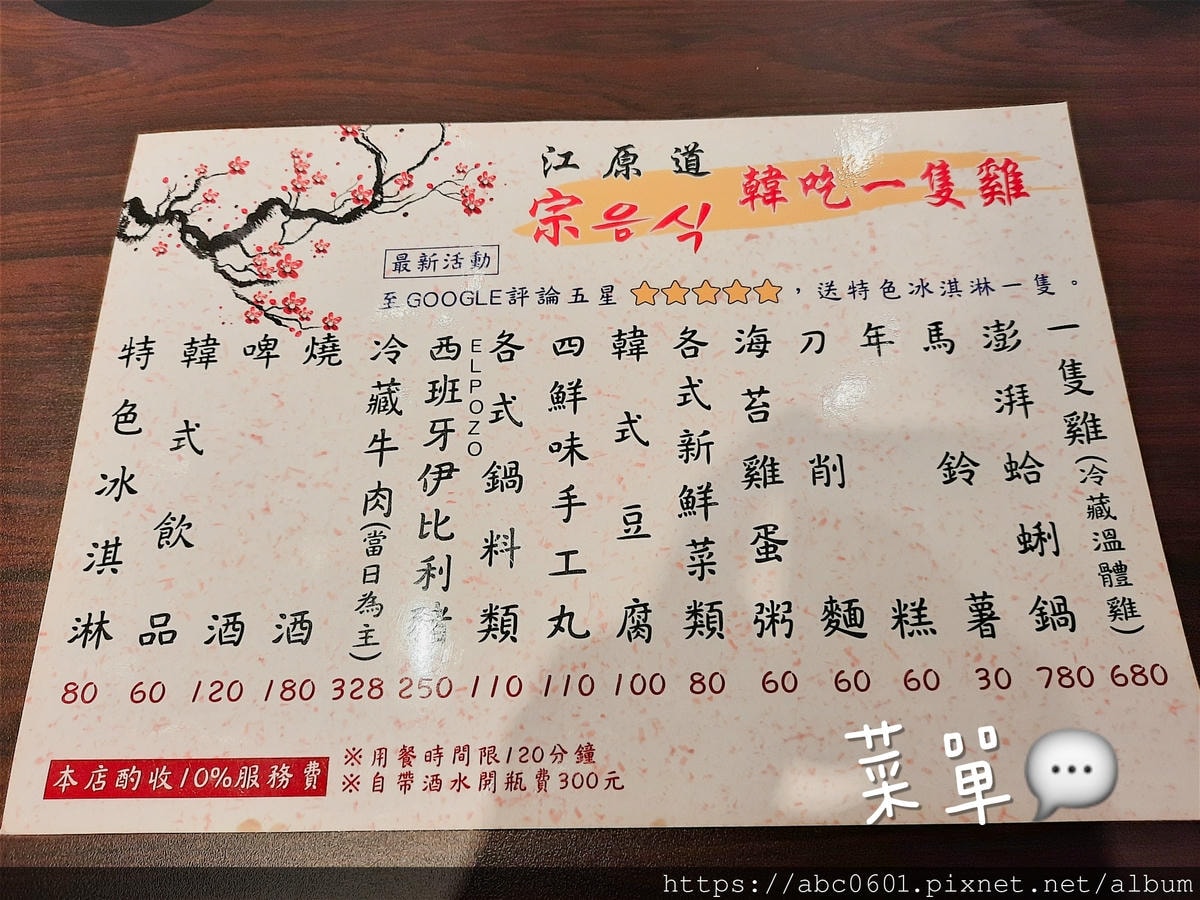 江原道
宗음식 韓吃一隻雞
最新活動
至GOOGLE評論五星，送特色冰淇淋一隻。
一隻雞(冷藏溫體雞) 680
澎湃蛤蜊鍋 780
馬鈴薯 30
年糕 60
刀削麵 60
海苔雞蛋粥 60
各式新鮮菜類 80
韓式豆腐 100
四鮮味手工丸 110
各式鍋料類 110
ELPOZO
西班牙伊比利豬 250
冷藏牛肉(當日為主) 328
燒酒 180
啤酒 120
韓式飲品 60
特色冰淇淋 80
本店酌收10%服務費
※用餐時間限120分鐘
※自帶酒水開瓶費300元
菜單
https://abc0601.pixnet.net/album